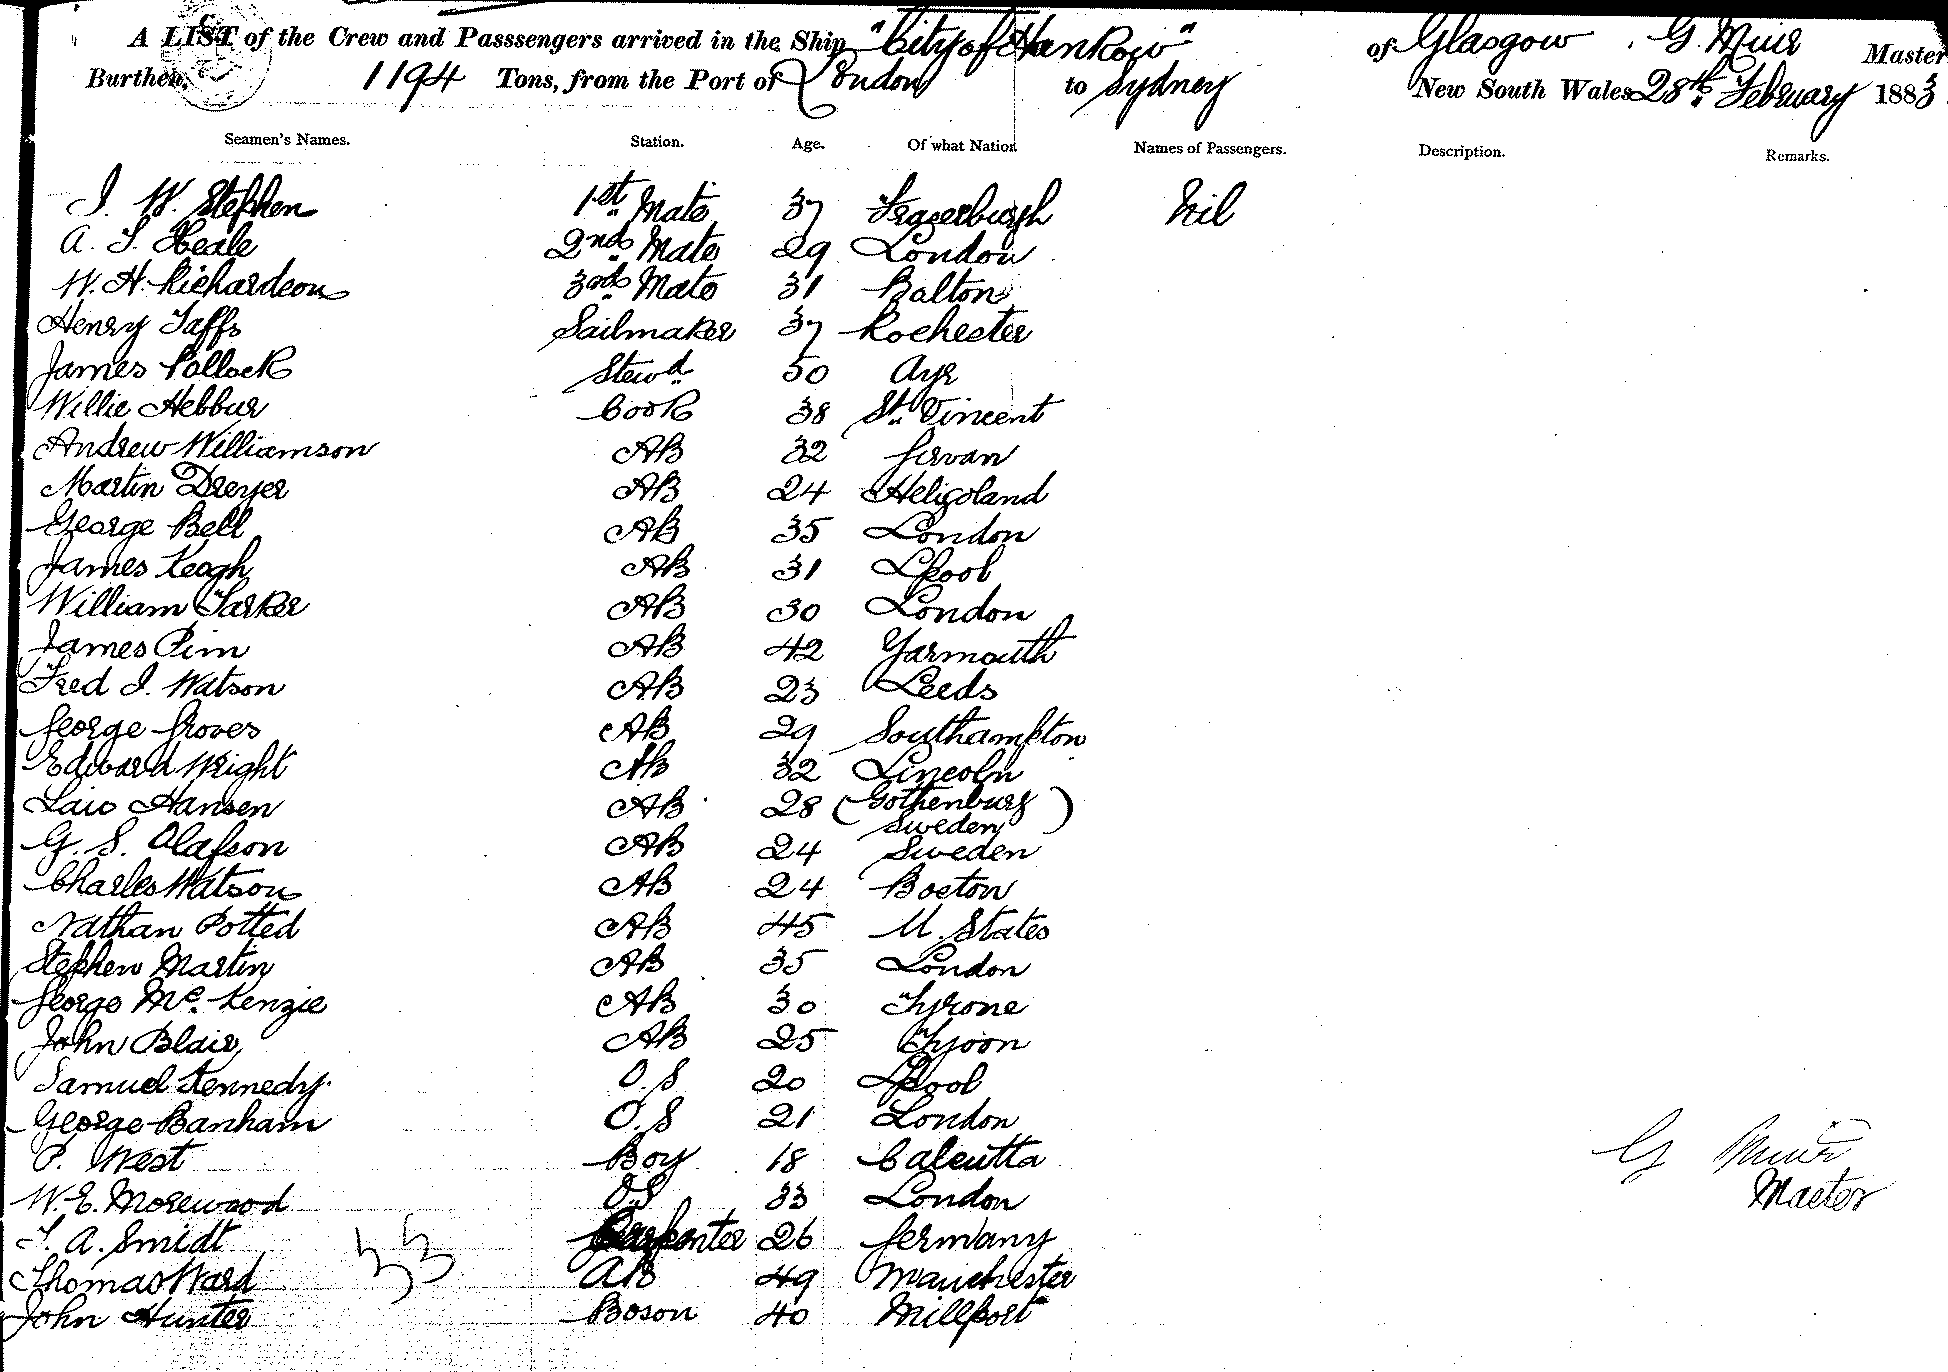 A LIST of the Crew and Passsengers arrived in the Ship "City of Hankow" of Glasgow, G. Muir Master
Burthen, 1194 Tons, from the Port of London to Sydney New South Wales 28th February 1883
Seamen's Names. Station. Age. Of what Nation Names of Passengers. Description. Remarks.
J. W. Stephen 1st Mate 37 Fraserburgh Nil
A. T. Heale 2nd Mate 29 London
W. H. Richardson 3rd Mate 31 Balton
Henry Taffs Sailmaker 37 Rochester
James Pollock Stewd 50 Ayr
Willie Hebbur Cook 38 St. Vincent
Andrew Williamson AB 32 Girvan
Martin Dreyer AB 24 Heligoland
George Bell AB 35 London
James Keogh AB 31 Lpool
William Tarker AB 30 London
James Pim AB 42 Yarmouth
Fred J. Watson AB 23 Leeds
George Groves AB 29 Southampton
Edward Wright AB 32 Lincoln
Lais Hansen AB 28 (Gothenburg
Sweden)
G. S. Olafson AB 24 Sweden
Charles Watson AB 24 Boston
Nathan Potted AB 45 U. States
Stephen Martin AB 35 London
George Mc. Kenzie AB 30 Tyrone
John Blair AB 25 Troon
Samuel Kennedy O.S 20 Lpool
George Banham O.S 21 London
P. West Boy 18 Calcutta
G Muir
W. E. Morewood O.S 33 London
Master
T. A. Smidt Carpenter 26 Germany
33
Thomas Ward AB 49 Manchester
John Hunter Boson 40 Millport